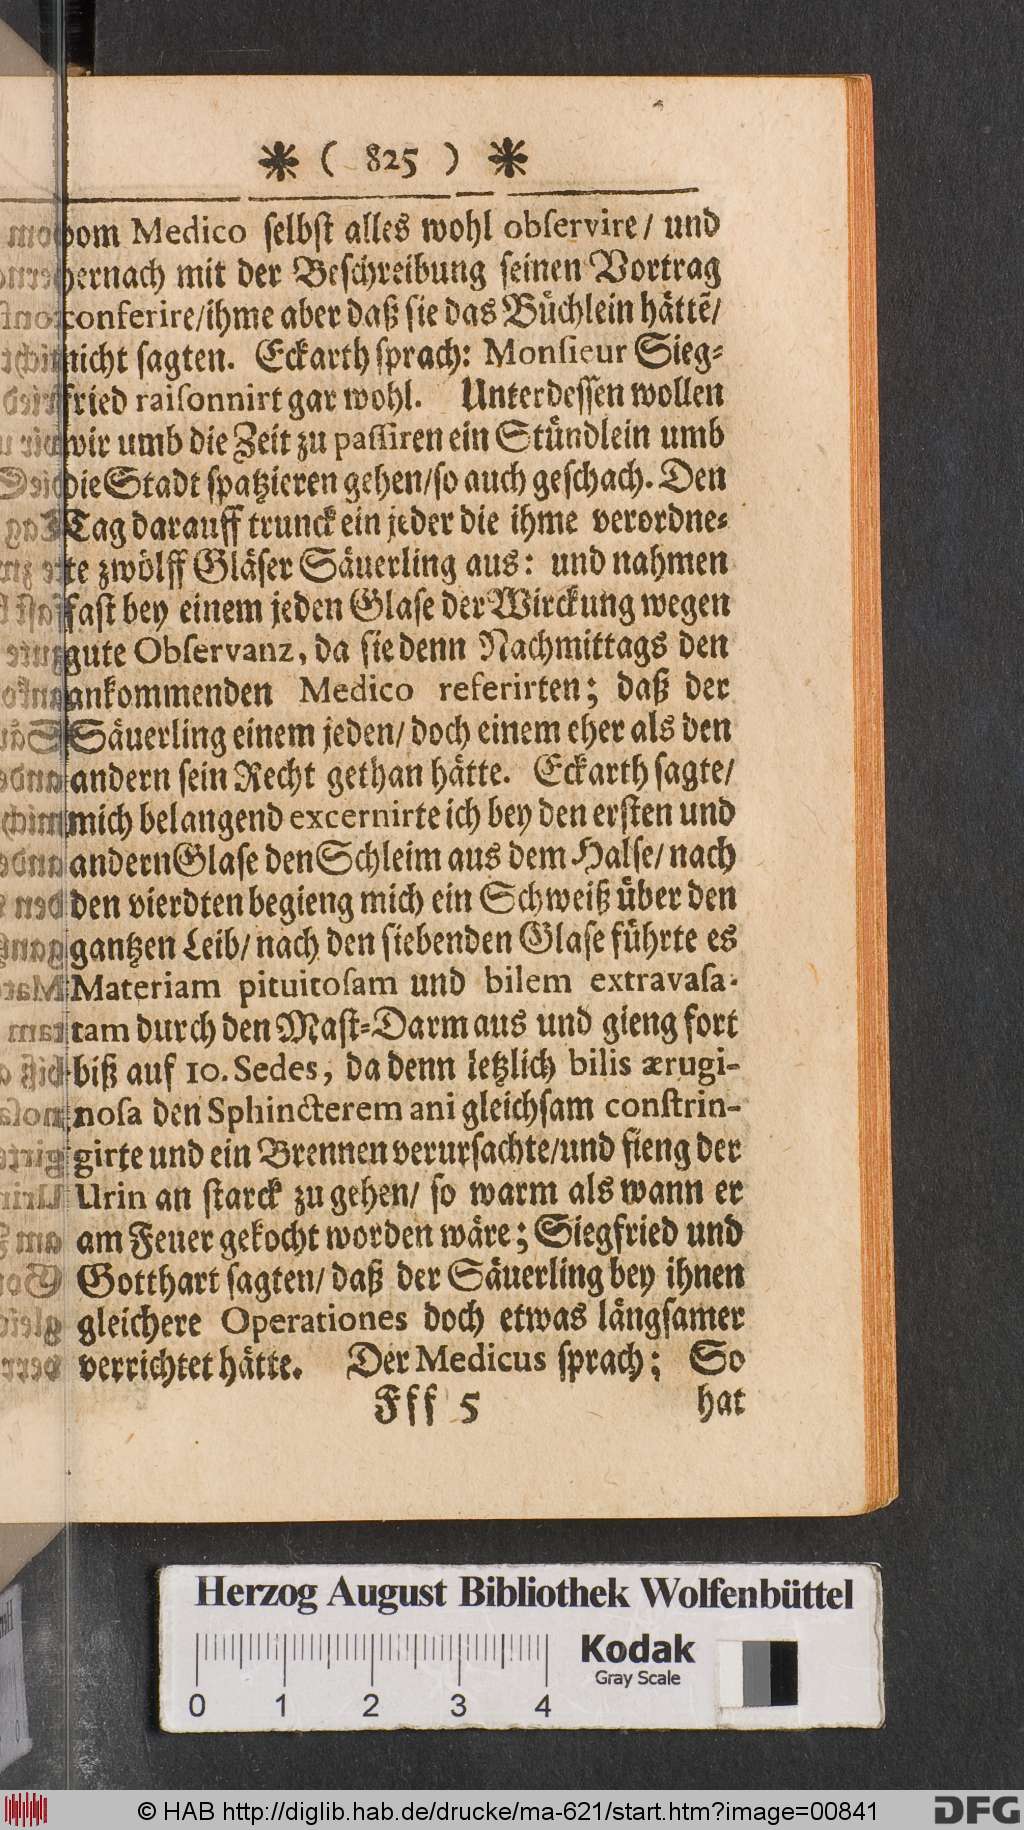 * ( 825 ) *
vom Medico selbst alles wohl observire/ und
hernach mit der Beschreibung seinen Vortrag
conferire/ihme aber daß sie das Büchlein hättẽ/
nicht sagten. Eckarth sprach: Monsieur Sieg-
fried raisonnirt gar wohl. Unterdessen wollen
wir umb die Zeit zu passiren ein Stündlein umb
die Stadt spatzieren gehen/so auch geschach. Den
Tag darauff trunck ein jeder die ihme verordne-
te zwölff Gläser Säuerling aus: und nahmen
fast bey einem jeden Glase der Wirckung wegen
gute Observanz, da sie denn Nachmittags den
ankommenden Medico referirten; daß der
Säuerling einem jeden/ doch einem eher als den
andern sein Recht gethan hätte. Eckarth sagte/
mich belangend excernirte ich bey den ersten und
andern Glase den Schleim aus dem Halse/ nach
den vierdten begieng mich ein Schweiß über den
gantzen Leib/ nach den siebenden Glase führte es
Materiam pituitosam und bilem extravasa-
tam durch den Mast-Darm aus und gieng fort
biß auf 10. Sedes, da denn letzlich bilis ærugi-
nosa den Sphincterem ani gleichsam constrin-
girte und ein Brennen verursachte/und fieng der
Urin an starck zu gehen/ so warm als wann er
am Feuer gekocht worden wäre; Siegfried und
Gotthart sagten/ daß der Säuerling bey ihnen
gleichere Operationes doch etwas längsamer
verrichtet hätte. Der Medicus sprach; So
Fff 5 hat
Herzog August Bibliothek Wolfenbüttel
Kodak
Gray Scale
0 1 2 3 4
© HAB http://diglib.hab.de/drucke/ma-621/start.htm?image=00841
DFG